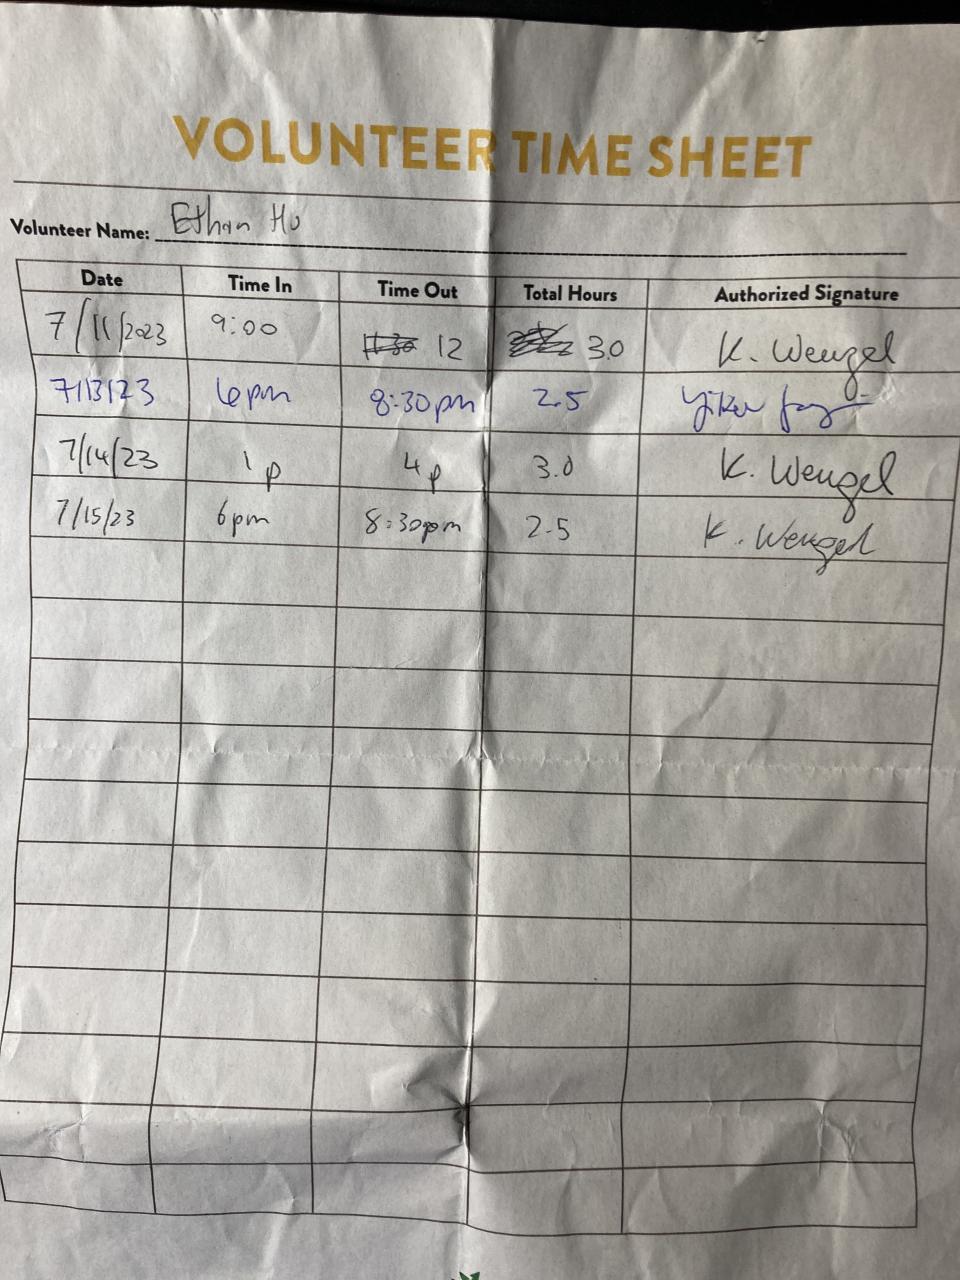 VOLUNTEER TIME SHEET
Volunteer Name: Ethan Hu
Date Time In Time Out Total Hours Authorized Signature
7/11/2023 9:00 11:30 12 3.0 K. Wengel
7/13/23 6pm 8:30pm 2.5
7/14/23 1p 4p 3.0 K. Wengel
7/15/23 6pm 8:30pm 2.5 K. Wengel